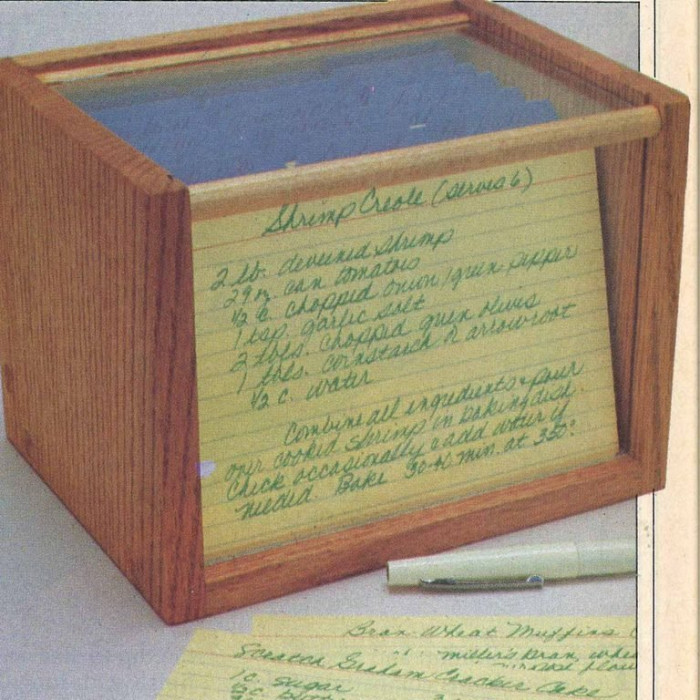 Shrimp Creole (serves 6)
2 lb. deveined shrimp
29 oz can tomatoes
1/2 c. chopped onion/green pepper
1 tsp. garlic salt
2 tbls. chopped green olives
1 tbls. cornstarch or arrowroot
1/2 c. water
Combine all ingredients & pour
over cooked shrimp in baking dish.
Check occasionally & add water if
needed. Bake 30-40 min. at 350°.
Bran Wheat Muffins
miller's bran, whea
Scratch Graham Cracker Cake
1 c. sugar